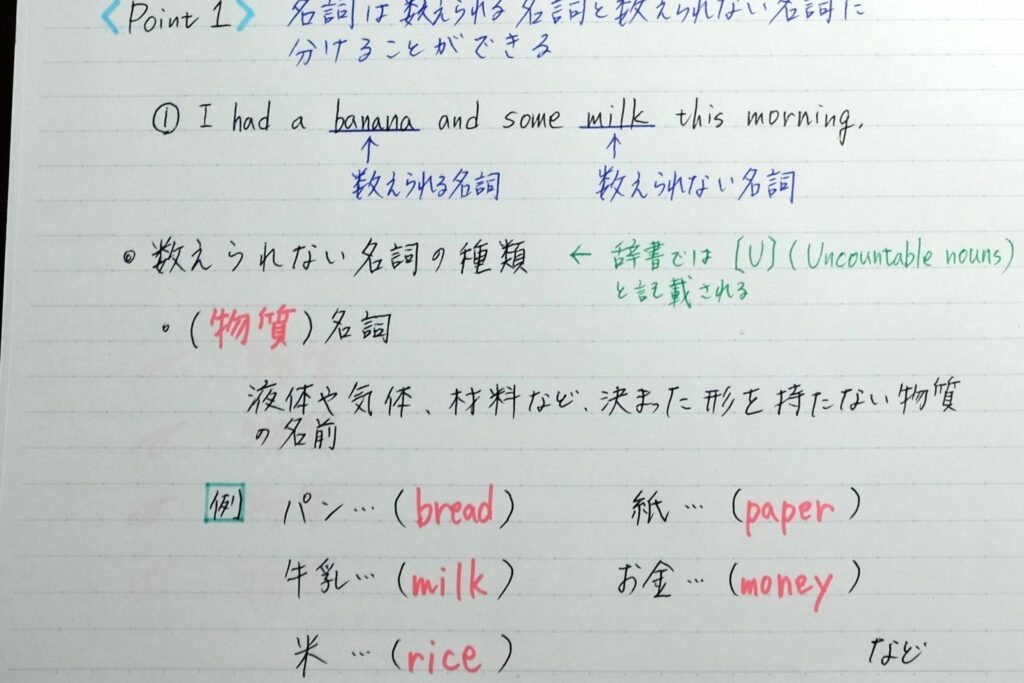 〈Point 1〉 名詞は数えられる名詞と数えられない名詞に
分けることができる
① I had a banana and some milk this morning.
↑ ↑
数えられる名詞 数えられない名詞
◎ 数えられない名詞の種類 ← 辞書では [U] (Uncountable nouns)
と記載される
・(物質) 名詞
液体や気体、材料など、決まった形を持たない物質
の名前
例 パン…(bread) 紙…(paper)
牛乳…(milk) お金…(money)
米…(rice) など